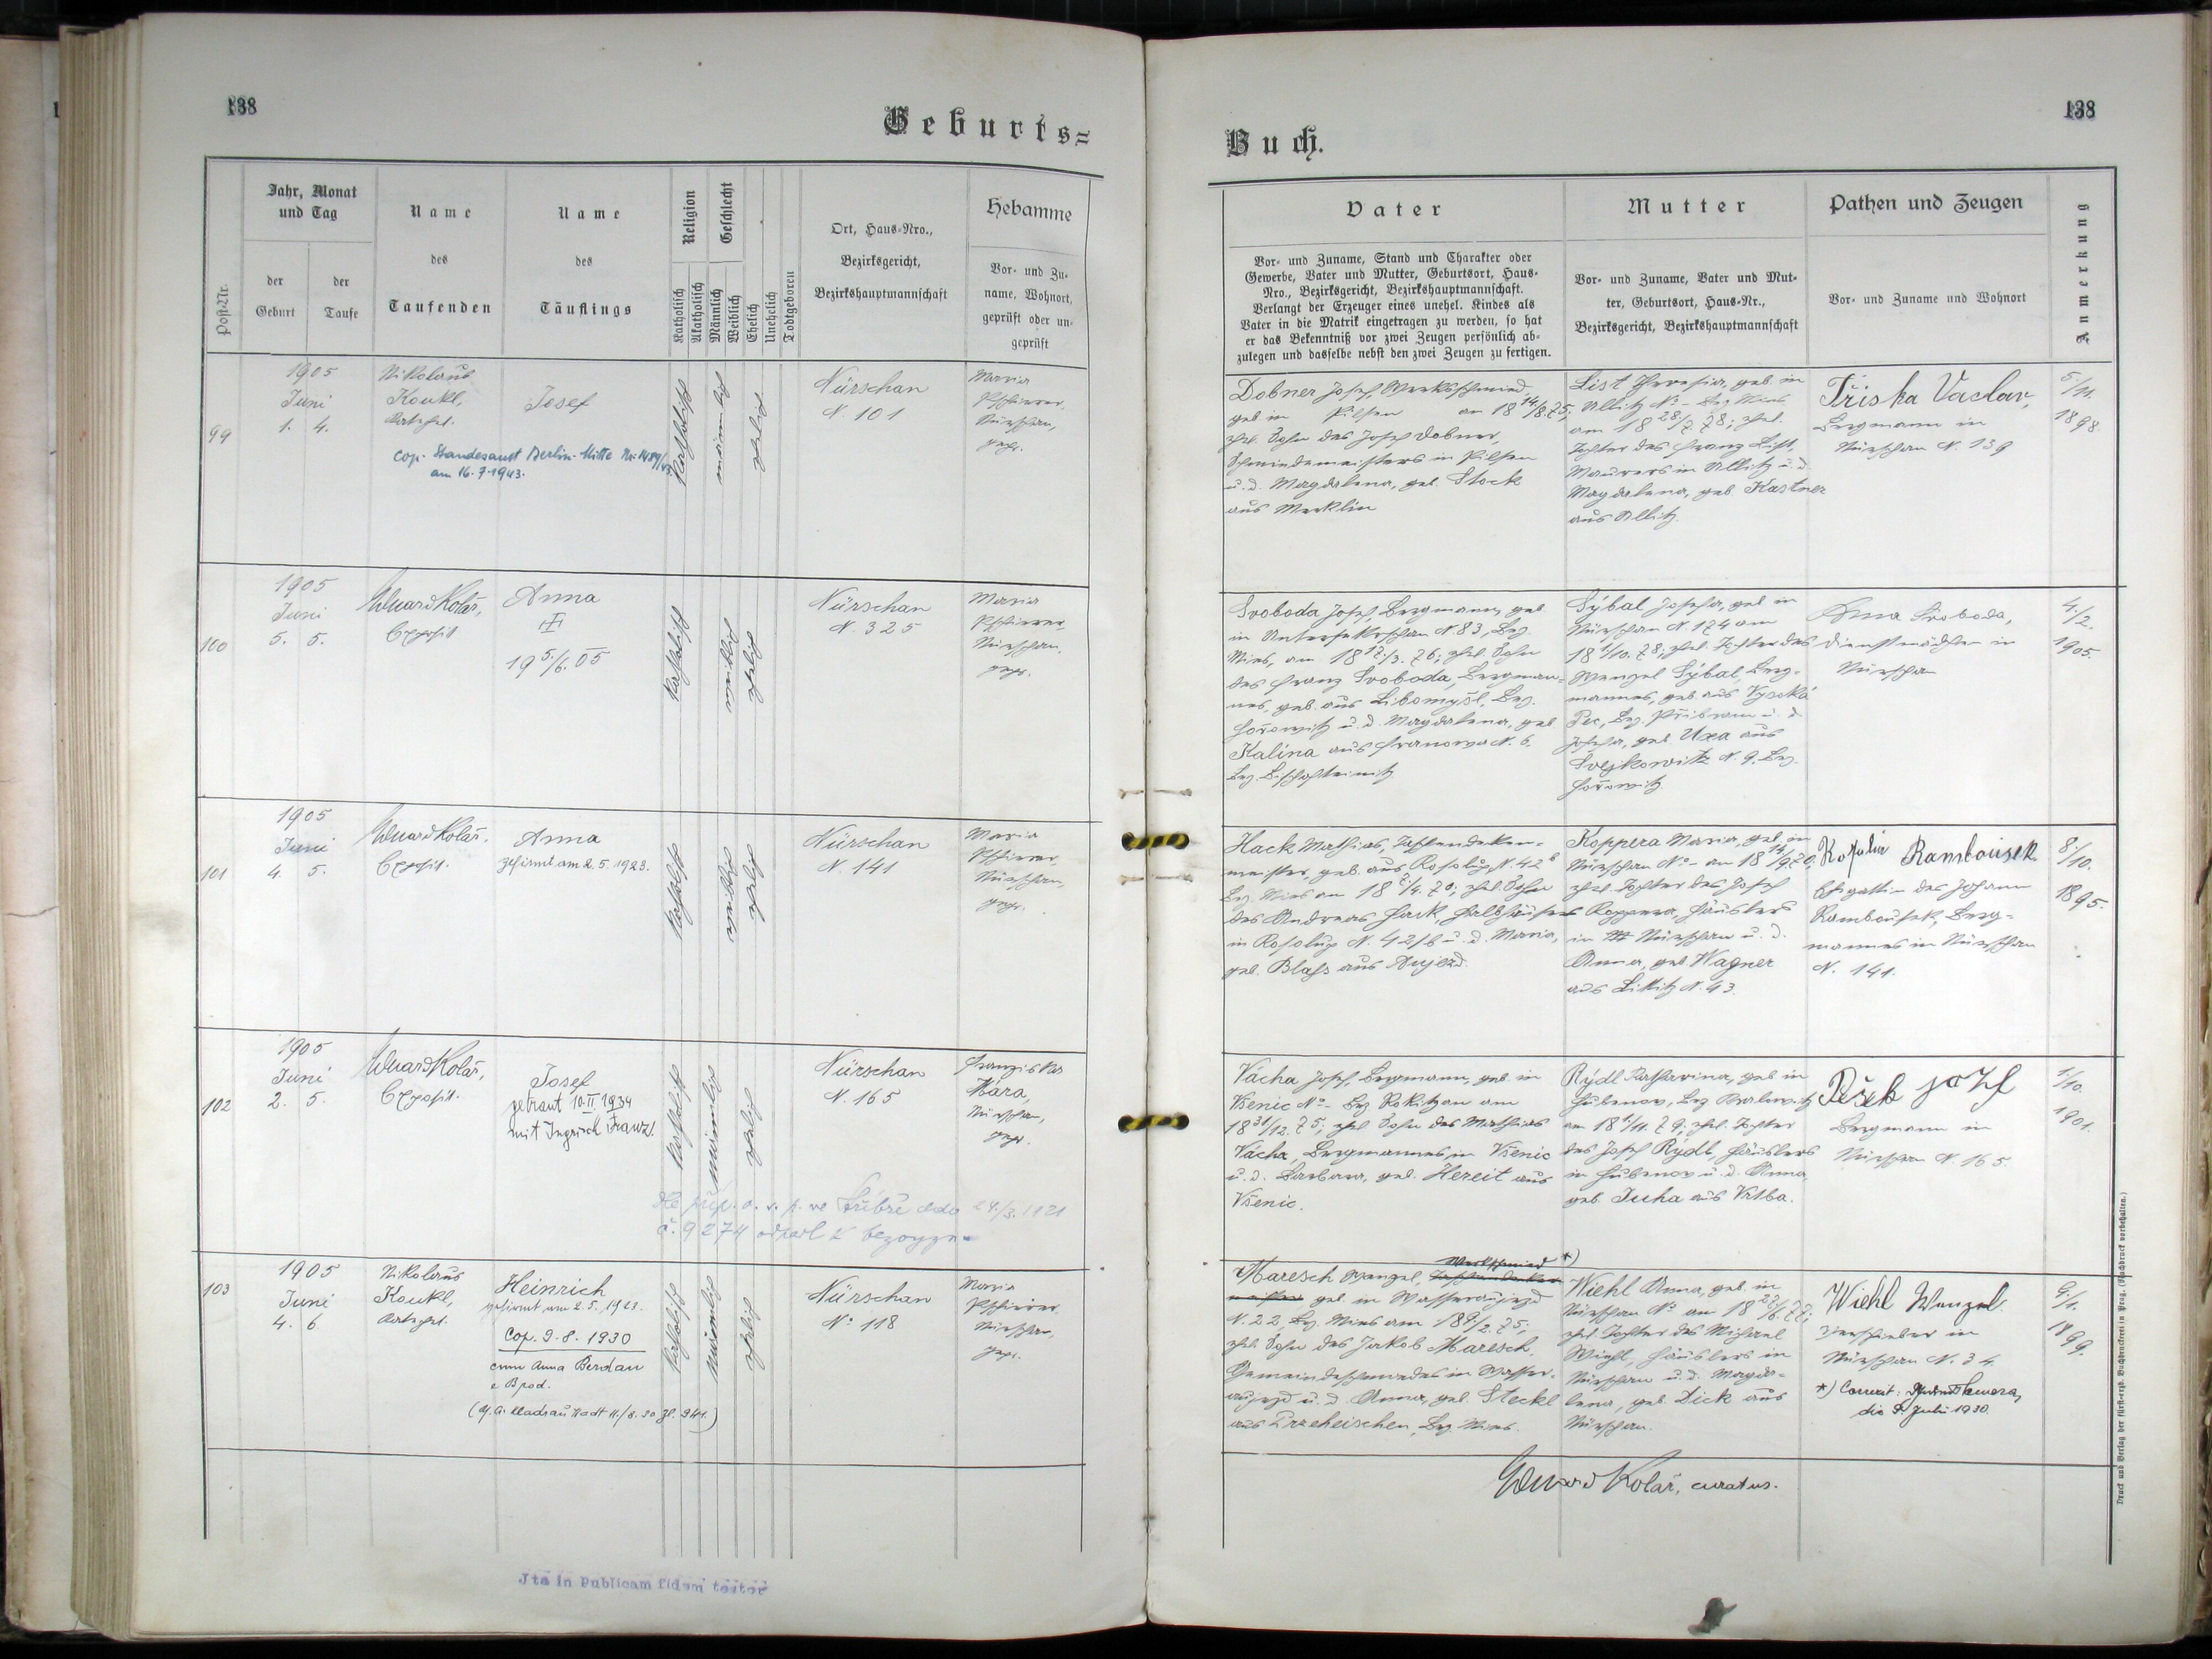 138
Geburts=
Jahr, Monat
und Tag
Name
Name
Religion
Geschlecht
Ort, Haus-Nro.,
Bezirksgericht,
Bezirkshauptmannschaft
Hebamme
Post-Nr.
der
Geburt
der
Taufe
des
Taufenden
des
Täuflings
Katholisch
Akatholisch
Männlich
Weiblich
Ehelich
Unehelich
Todtgeboren
Vor- und Zu-
name, Wohnort,
geprüft oder un-
geprüft
99
1905
Juni
1. 4.
Nikolaus
Koukl,
Josef
cop. Standesamt Berlin-Mitte
am 16.7.1943.
katholisch
männlich
ehelich
Nürschan
N. 101
Maria
Nürschan,
gepr.
100
1905
Juni
5. 5.
Eduard Kolář,
Exposit
Anna
19 5/6. 05
katholisch
weiblich
ehelich
Nürschan
N. 325
Maria
Nürschan,
gepr.
101
1905
Juni
4. 5.
Eduard Kolář,
Exposit.
Anna
gefirmt am 2.5.1923.
katholisch
weiblich
ehelich
Nürschan
N. 141
Maria
Nürschan,
gepr.
102
1905
Juni
2. 5.
Eduard Kolář,
Exposit.
Josef
getraut 10.II.1934
mit Franz.
katholisch
männlich
ehelich
Nürschan
N. 165
Franziska
Wara,
Nürschan,
gepr.
Dle příp. o. s. p. ve Stříbře
č. 9274
103
1905
Juni
4. 6.
Nikolaus
Koukl,
Heinrich
gefirmt am 2.5.1923.
Cop. 9.8.1930
cum Anna Berdau
e Brod.
katholisch
männlich
ehelich
Nürschan
No 118
Maria
Nürschan,
gepr.
Jta in Publicam fidem testor
138
Buch.
Vater
Mutter
Pathen und Zeugen
Anmerkung
Vor- und Zuname, Stand und Charakter oder
Gewerbe, Vater und Mutter, Geburtsort, Haus-
Nro., Bezirksgericht, Bezirkshauptmannschaft.
Verlangt der Erzeuger eines unehel. Kindes als
Vater in die Matrik eingetragen zu werden, so hat
er das Bekenntniß vor zwei Zeugen persönlich ab-
zulegen und dasselbe nebst den zwei Zeugen zu fertigen.
Vor- und Zuname, Vater und Mut-
ter, Geburtsort, Haus-Nr.,
Bezirksgericht, Bezirkshauptmannschaft
Vor- und Zuname und Wohnort
Dobner Josef, Werksschmied,
geb. in Pilsen am 18 14/8. 75;
ehel. Sohn des Josef Dobner,
Schmiedemeisters in Pilsen
u. d. Magdalena, geb. Stock
aus Merklin
List Theresia, geb. in
Ullitz No - Bez. Mies,
am 18 28/7. 78; ehel.
Tochter des Franz List,
Maurers in Ullitz u. d.
Magdalena, geb. Kastner
aus Ullitz.
Tříska Vaclav,
Bergmann in
Nürschan N. 139
5/11.
1898.
Svoboda Josef, Bergmann, geb.
in N. 83, Bez.
Mies, am 18 12/3. 76; ehel. Sohn
des Franz Svoboda, Bergman-
nes, geb. aus Libomyšl, Bez.
Hořowitz u. d. Magdalena, geb.
Kalina aus N. 6,
Bez. Bischofteinitz
Sýbal Josefa, geb. in
Nürschan N. 174 am
18 1/10. 78; ehel. Tochter des
Wenzel Sýbal, Berg-
mannes, geb. aus Vysoká
Pec, Bez. Přibram u. d.
Josefa, geb. Uxa aus
Svejkowitz N. 9, Bez.
Hořowitz
Anna Svoboda,
Dienstmädchen in
Nürschan
4./2.
1905.
Hack Mathias,
meister, geb. aus Kosolup N. 42
Bez. Mies am 18 2/4. 70; ehel. Sohn
des Andreas Hack, Halbhäuslers
in Kosolup N. 42/b u. d. Maria,
geb. Blaß aus Aujezd.
Koppera Maria, geb. in
Nürschan No - am 18 14/9. 70,
ehel. Tochter des Josef
Koppera, Häuslers
in Nürschan u. d.
Anna, geb. Wagner
aus Littitz N. 43.
Rosalia Rambousek
Ehegattin des Johann
Rambousek, Berg-
mannes in Nürschan
N. 141.
8./10.
1895.
Vácha Josef, Bergmann, geb. in
Všenic No - Bez. Rokitzan am
18 31/12. 75; ehel. Sohn des Mathias
Vácha, Bergmannes in Všenic
u. d. Barbara, geb. Hereit aus
Všenic.
Rýdl Katharina, geb. in
Hubenov, Bez. Kralowitz
am 18 1/11. 79; ehel. Tochter
des Josef Rýdl, Häuslers
in Hubenov u. d. Anna,
geb. Jucha aus Vrtba.
Pešek Jozef
Bergmann in
Nürschan N. 165.
1/10.
1901.
Werkschmied *)
Maresch Wenzel,
geb. in Wasseraujezd
N. 22, Bez. Mies am 18 9/2. 75;
ehel. Sohn des Jakob Maresch,
Gemeindeschmiedes in Wasser-
aujezd u. d. Anna, geb. Steckl
aus Przeheischen, Bez. Mies.
Wiehl Anna, geb. in
Nürschan No am 18 22/6. 77;
ehel. Tochter des Michael
Wiehl, Häuslers in
Nürschan u. d. Magda-
lena, geb. Dick aus
Nürschan.
Wiehl Wenzel.
Verschieber in
Nürschan N. 34.
*) Correxit:
die 9. Juli 1930.
9/1.
1899.
Eduard Kolář, curatus.
Druck und Verlag der fürst-erzb. Buchdruckerei in Prag. (Nachdruck vorbehalten.)